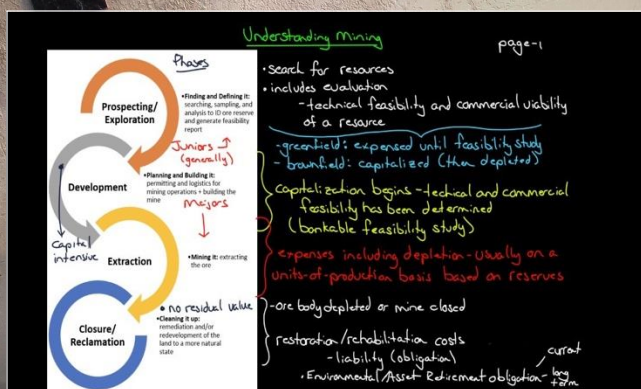 Understanding Mining
page-1
Phases
Prospecting/
Exploration
•Finding and Defining it:
searching, sampling, and
analysis to ID ore reserve
and generate feasibility
report
Juniors
(generally)
Development
•Planning and Building it:
permitting and logistics for
mining operations + building the
mine
Majors
Capital
intensive
Extraction
•Mining it: extracting
the ore
• no residual value
Closure/
Reclamation
•Cleaning it up:
remediation and/or
redevelopment of the
land to a more natural
state
• search for resources
• includes evaluation
- technical feasibility and commercial viability
of a resource
- greenfield: expensed until feasibility study
- brownfield: capitalized (then depleted)
capitalization begins - techical and commercial
feasibility has been determined
(bankable feasibility study)
expenses including depletion - usually on a
units-of-production basis based on reserves
- ore body depleted or mine closed
restoration/rehabilitation costs
- liability (obligation)
• Environmental/Asset Retirement obligation
current
long
term